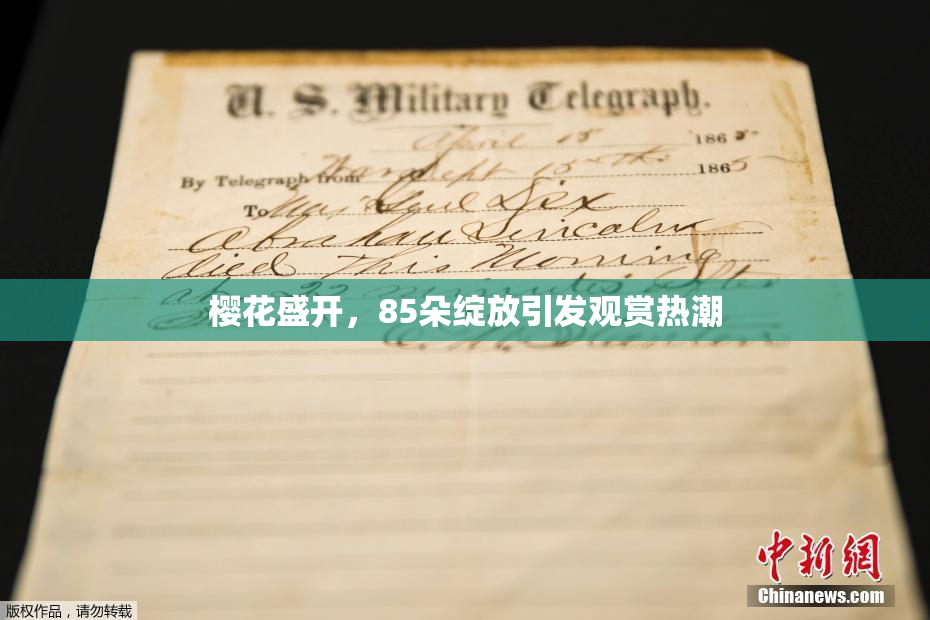 U. S. Military Telegraph.
April 15 1865
By Telegraph from War Dept 15th 1865
To Maj Genl Dix
Abraham Lincoln
died This Morning
at 22 minutes after
樱花盛开，85朵绽放引发观赏热潮
Stanton
中新网
Chinanews.com
版权作品，请勿转载